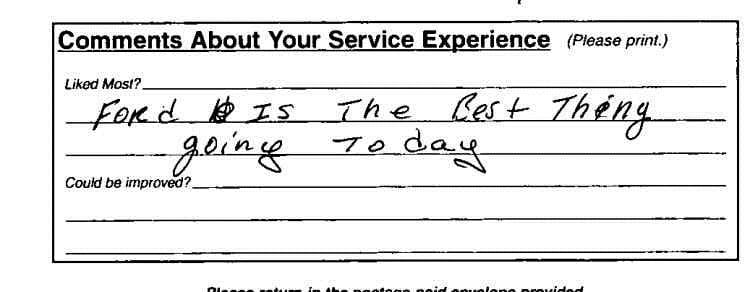 Comments About Your Service Experience (Please print.)
Liked Most?
Ford Is The Best Thing
going Today
Could be improved?
Please return in the postage paid envelope provided